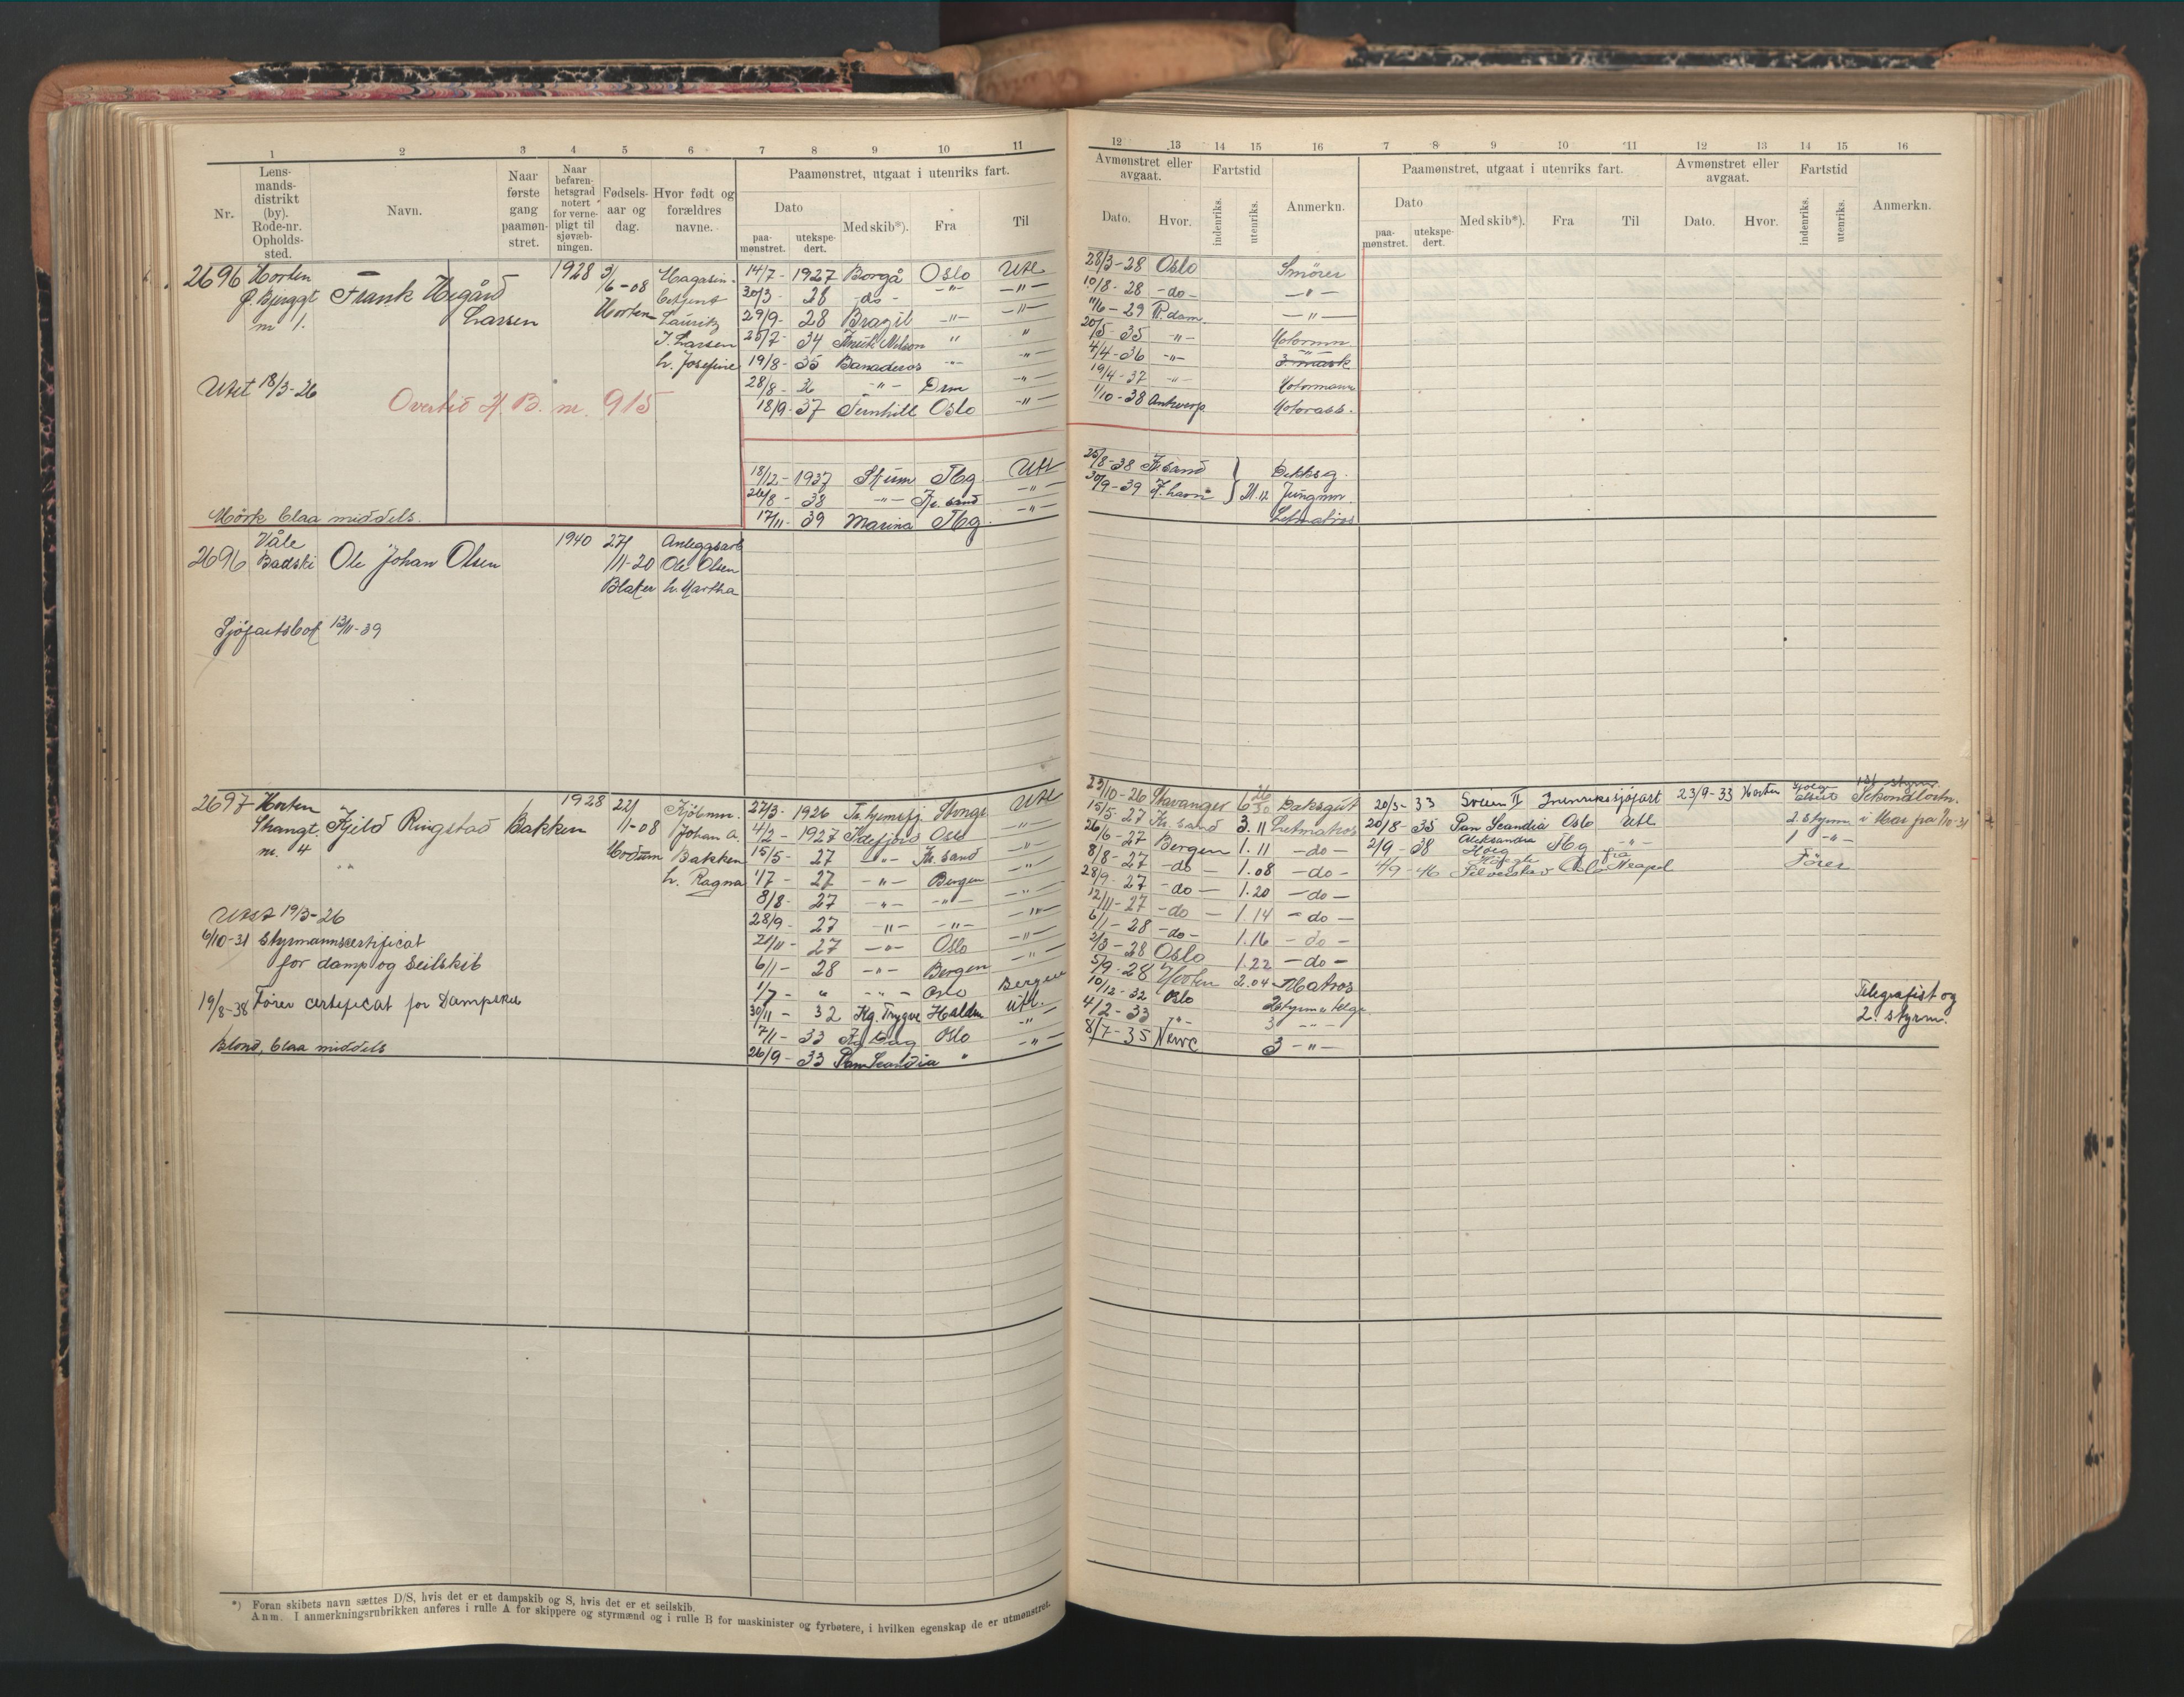 1 2 3 4 5 6 7 8 9 10 11
Nr. Lens- mands- distrikt (by). Rode-nr. Opholds- sted. Navn. Naar første gang paamøn- stret. Naar befaren- hetsgrad notert for verne- pligt til sjøvæb- ningen. Fødsels- aar og dag. Hvor født og forældres navne. Paamønstret, utgaat i utenriks fart.
Dato Med skib*). Fra Til
paa- mønstret. utekspe- dert.
2696 Horten Frank Hegård Larsen 1928 3/6-08 Horten Magasin- betjent Lauritz J. Larsen h. Josefine
14/7- 1927 Borgå Oslo Utl
30/3- 28 -do- -"- -"-
29/9- 28 Brazil -"- -"-
25/7- 34 Knut Nilson " "
19/8- 35 Banaderos -"- -"-
28/8- 36 -"- Drm -"-
18/9- 37 Fernhill Oslo -"-
Utst 18/3-26
Overført M. B. nr. 915
18/12- 1937 Skum Tbg Utl
26/8- 38 -"- Kr. sand -"-
17/11- 39 Marina Tbg. -"-
Mörk blaa middels.
2696 Våle Badski Ole Johan Olsen 1940 27/11-20 Blaker Anleggsarb Ole Olsen h. Martha
Sjöfartsbok 13/11-39
2697 Horten Strangt. nr. 4 Kjeld Ringstad Bakken 1928 22/11-08 Modum Kjöbmn. Johan A. Bakken h. Ragna
27/3- 1926 Tr.hjemsfj. Stvngr Utl
4/2- 1927 Idefjord Oslo -"-
15/5- 27 -"- Kr. sand -"-
1/7- 27 -"- Bergen -"-
8/8- 27 -"- -"- -"-
28/9- 27 -"- -"- -"-
21/11- 27 -"- Oslo -"-
6/1- 28 -"- Bergen -"-
1/7- " -"- Oslo Bergen
30/11- 32 Kg. Trygve Halden utl.
7/1- 33 Oslo -"-
26/9- 33 Pan Scandia " -"-
Utst 19/3-26
6/10-31 Styrmannscertificat
for damp og seilskib
19/8-38 Förer certificat for Dampskib
Blond, blaa middels
*) Foran skibets navn sættes D/S, hvis det er et dampskib og S, hvis det er et seilskib.
Anm. I anmerkningsrubrikken anføres i rulle A for skippere og styrmænd og i rulle B for maskinister og fyrbøtere, i hvilken egenskap de er utmønstret.
12 13 14 15 16 7 8 9 10 11 12 13 14 15 16
Avmønstret eller avgaat. Fartstid Anmerkn. Paamønstret, utgaat i utenriks fart. Avmønstret eller avgaat. Fartstid Anmerkn.
Dato. Hvor. indenriks. utenriks. Dato paa- mønstret. utekspe- dert. Med skib*). Fra Til Dato. Hvor. indenriks. utenriks.
28/3-28 Oslo Smörer
10/8-28 -do- -"-
11/6-29 R.dam -"-
20/5-35 -"- Motormn
4/4-36 -"- 3. mask
19/4-37 -"- Motormann
1/10-38 Antwerp Motorass.
25/8-38 Kr.sand Dekksg.
30/9-39 F.havn 21.12 Jungmn.
Letmatros
23/10-26 Stavanger 6 26/30 Daksgut
15/5-27 Kr. sand 3.11 Letmatros
26/6-27 Bergen 1.11 -do-
8/8-27 -do- 1.08 -do-
28/9-27 -do- 1.20 -do-
12/11-27 -do- 1.14 -do-
6/1-28 -do- 1.16 -do-
2/3-28 Oslo 1.22 -do-
5/9-28 Horten 2.04 Matros
10/12-32 Oslo 2 styrm telegr
4/2-33 -"- 3 -"-
8/7-35 Newc 3 -"-
20/3-33 Svein II Innenrikssjöfart 23/9-33 Horten 1st styrm. Sekondlöitn.
20/8-35 Pan Scandia Oslo Utl 2. styrm i Mar fra 1/10-31
2/9-38 Aleksandra Höeg Tbg -"- 1 -"-
4/9-46 Höegh Silverstar Oslo fra Neapel Förer
Telegrafist og
2. styrm.